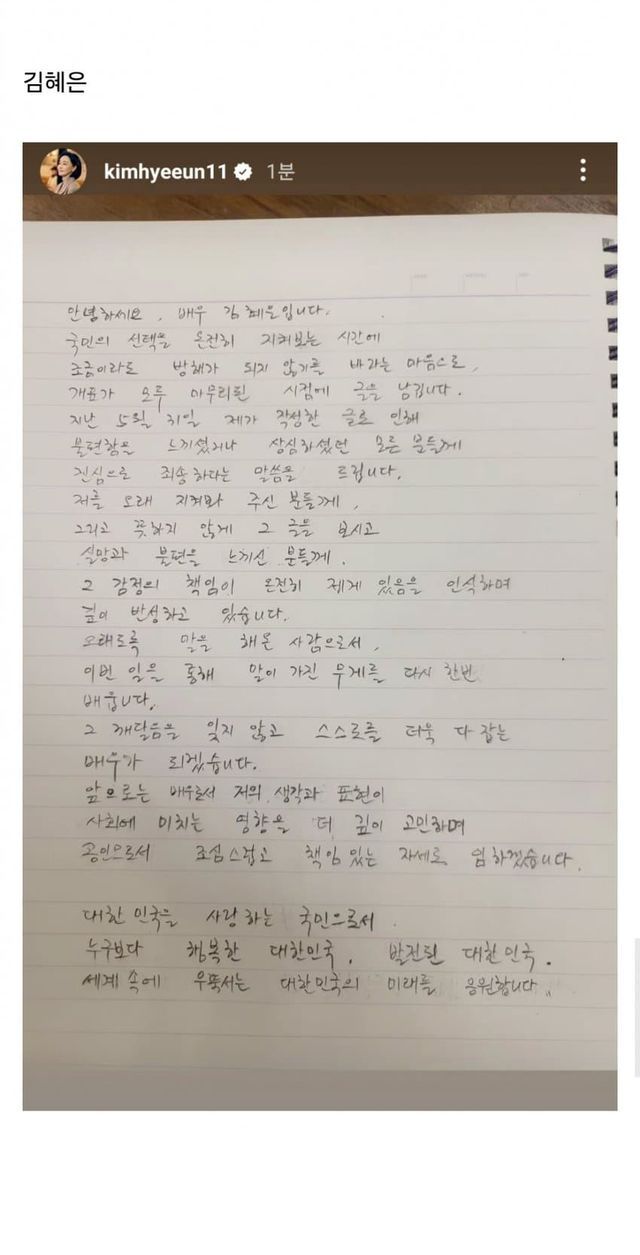 김혜은
kimhyeeun11 1분
안녕하세요, 배우 김혜은입니다.
국민의 선택을 온전히 지켜보는 시간에
조금이라도 방해가 되지 않기를 바라는 마음으로,
개표가 모두 마무리된 시점에 글을 남깁니다.
지난 5월 31일 제가 작성한 글로 인해
불편함을 느끼셨거나 상심하셨던 모든 분들께
진심으로 죄송하다는 말씀을 드립니다.
저를 오래 지켜봐 주신 분들께,
그리고 뜻하지 않게 그 글을 보시고
실망과 불편을 느끼신 분들께.
그 감정의 책임이 온전히 제게 있음을 인식하며
깊이 반성하고 있습니다.
오래도록 말을 해온 사람으로서,
이번 일을 통해 말이 가진 무게를 다시 한번
배웁니다.
그 깨달음을 잊지 않고 스스로를 더욱 다잡는
배우가 되겠습니다.
앞으로는 배우로서 저의 생각과 표현이
사회에 미치는 영향을 더 깊이 고민하며
공인으로서 조심스럽고 책임 있는 자세로 임하겠습니다.
대한민국을 사랑하는 국민으로서.
누구보다 행복한 대한민국, 발전된 대한민국.
세계 속에 우뚝서는 대한민국의 미래를 응원합니다..